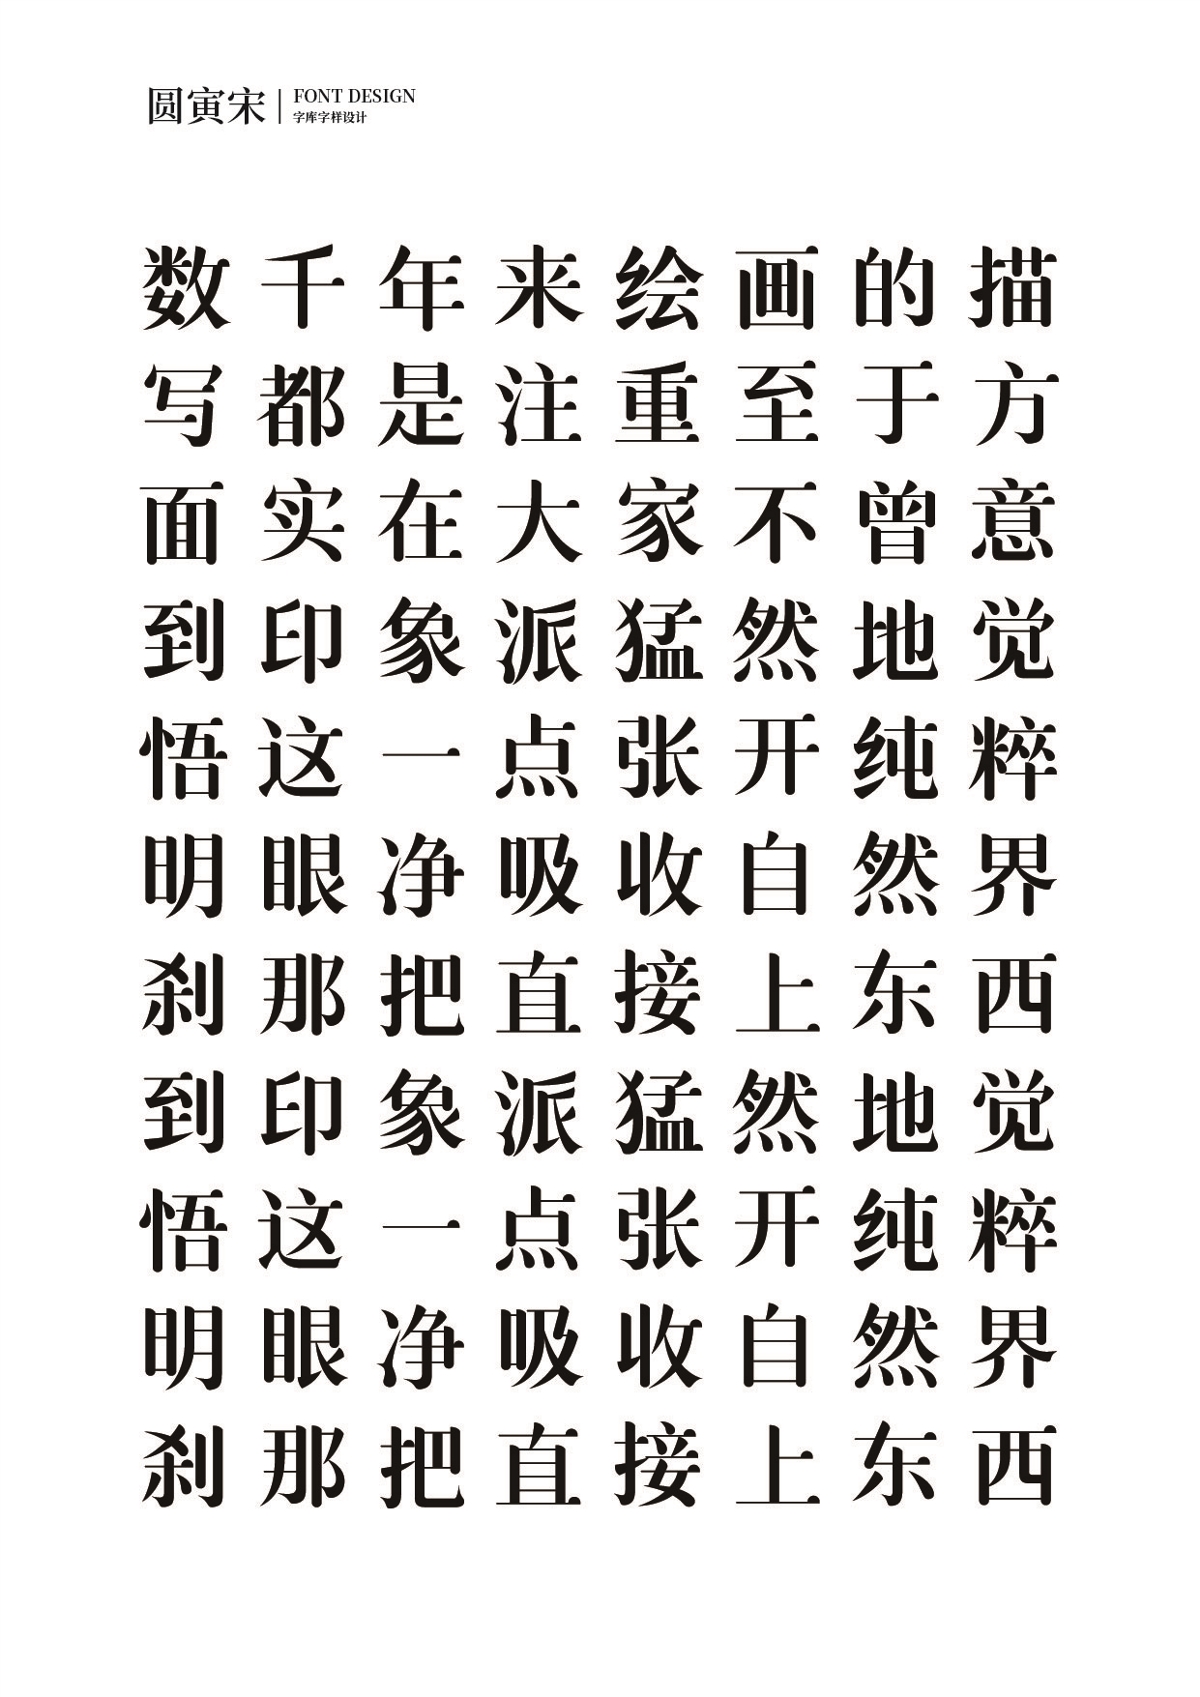 圆寅宋
FONT DESIGN
字库字样设计
数千年来绘画的描
写都是注重至于方
面实在大家不曾意
到印象派猛然地觉
悟这一点张开纯粹
明眼净吸收自然界
刹那把直接上东西
到印象派猛然地觉
悟这一点张开纯粹
明眼净吸收自然界
刹那把直接上东西